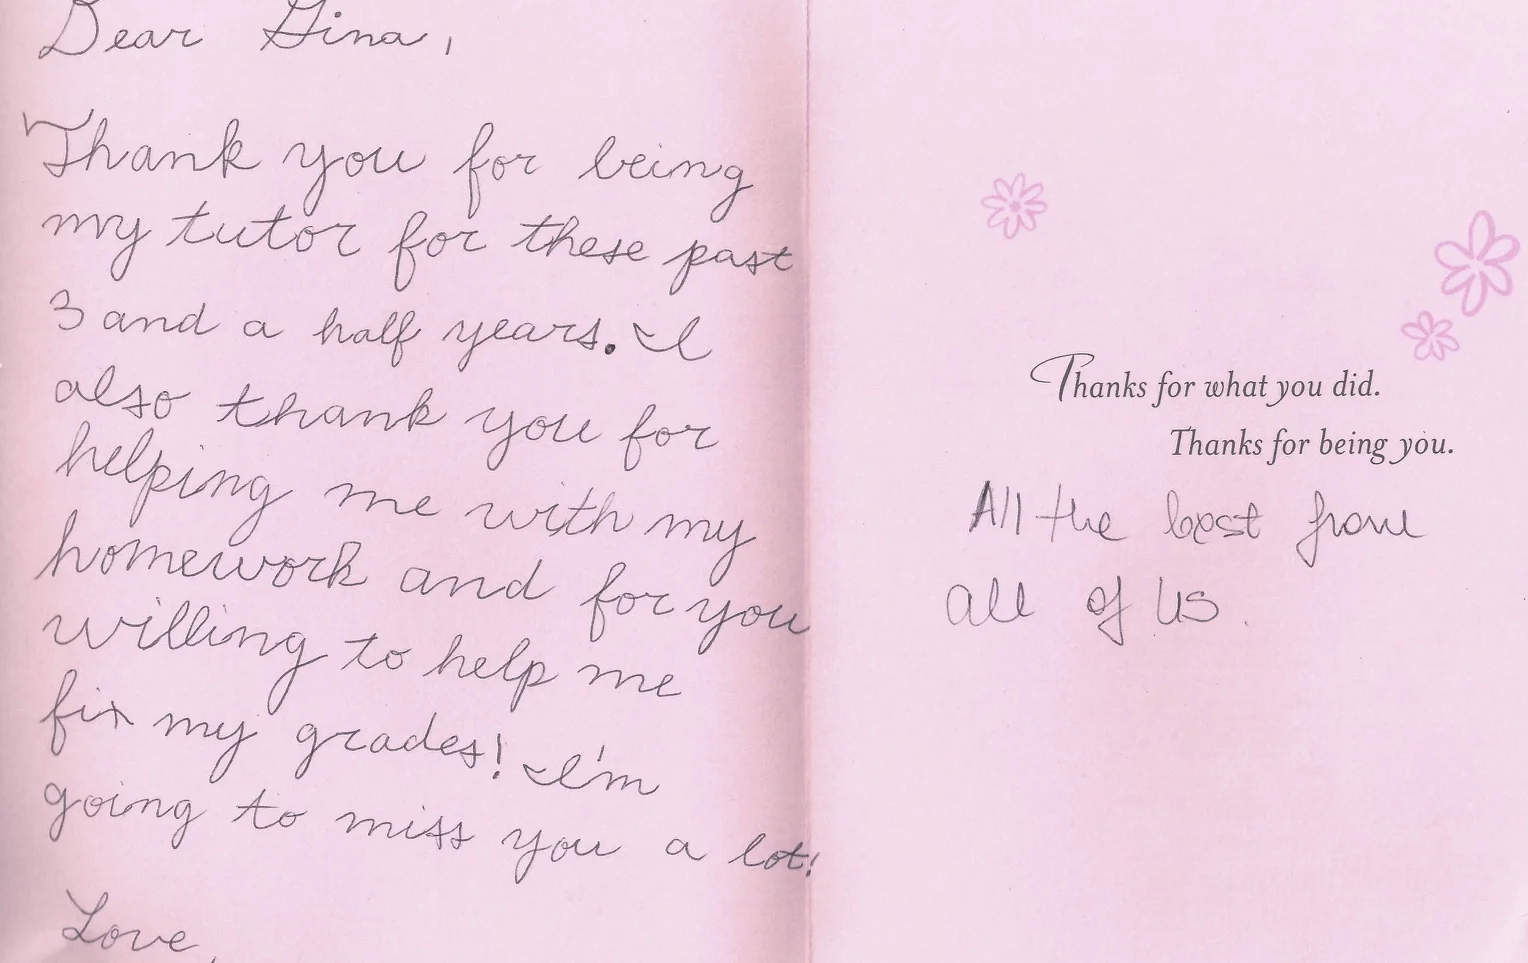 Dear Gina,
Thank you for being
my tutor for these past
3 and a half years. I
also thank you for
helping me with my
homework and for you
willing to help me
fix my grades! I'm
going to miss you a lot!
Love,
Thanks for what you did.
Thanks for being you.
All the best from
all of us.